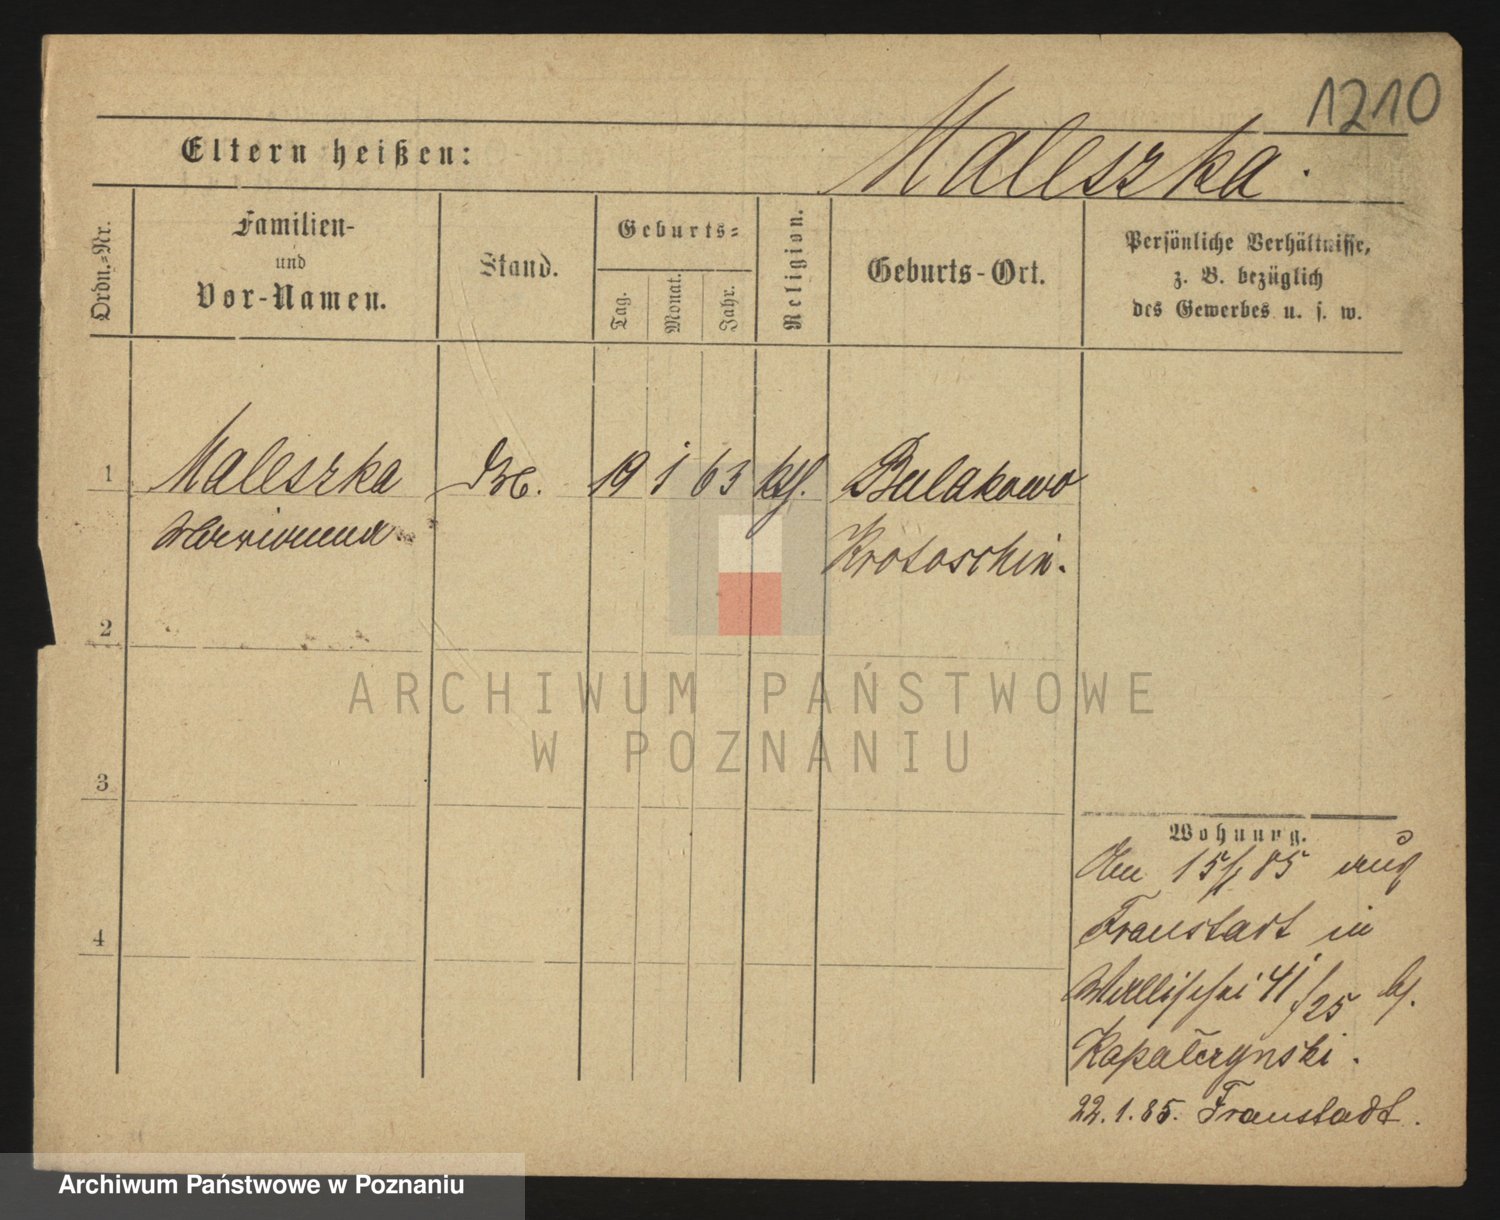 1210
Eltern heißen:
Maleszka.
Ordn.-Nr.
Familien-
und
Vor-Namen.
Stand.
Geburts-
Tag.
Monat.
Jahr.
Religion.
Geburts-Ort.
Persönliche Verhältnisse,
z. B. bezüglich
des Gewerbes u. s. w.
1 Maleszka 19 1 63 kth. Bulakowo
Marianna Krotoschin.
2
3
4
Wohnung.
15/1 85 aus
Fraustadt in
Wallischei 41/25 bei
Kapalczynski.
22.1.85. Fraustadt.
ARCHIWUM PAŃSTWOWE
W POZNANIU
Archiwum Państwowe w Poznaniu